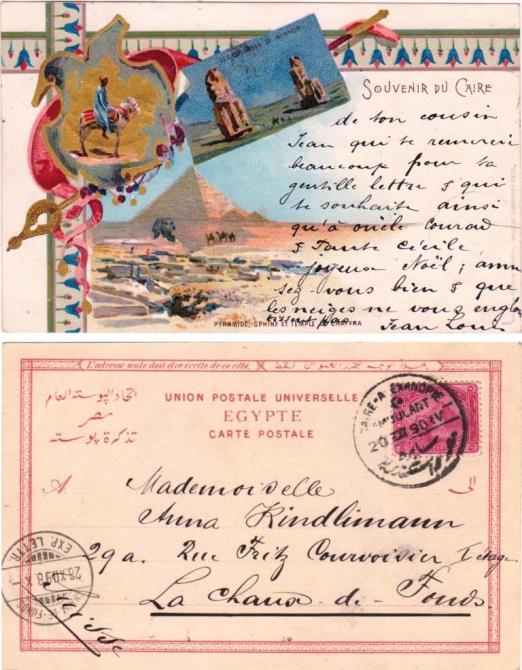 LES COLOSSES DE MEMNON
SOUVENIR DU CAIRE
de ton cousin
Jean qui te remercie
beaucoup pour ta
gentille lettre & qui
te souhaite ainsi
qu'à oncle Conrad
& Tante Cécile
joyeux Noël ; amu
sez-vous bien & que
les neiges ne vous englou
tissent pas. Jean Louis
PYRAMIDE, SPHINX ET TEMPLE DE CHAFFRA
L'adresse seule doit être écrite de ce côté.
اتحاد البوسته العام
مصر
تذكرة بوسته
UNION POSTALE UNIVERSELLE
EGYPTE
CARTE POSTALE
CAIRE-ALEXANDRIE
AMBULANT
20 XII 9
A
Mademoiselle
الى
Anna Kindlimann
29a. Rue Fritz Courvoisier I étage
La Chaux-de-Fonds.
Suisse
EXP. LETTR.
26.XII.98. X
CHAUX-DE-FONDS